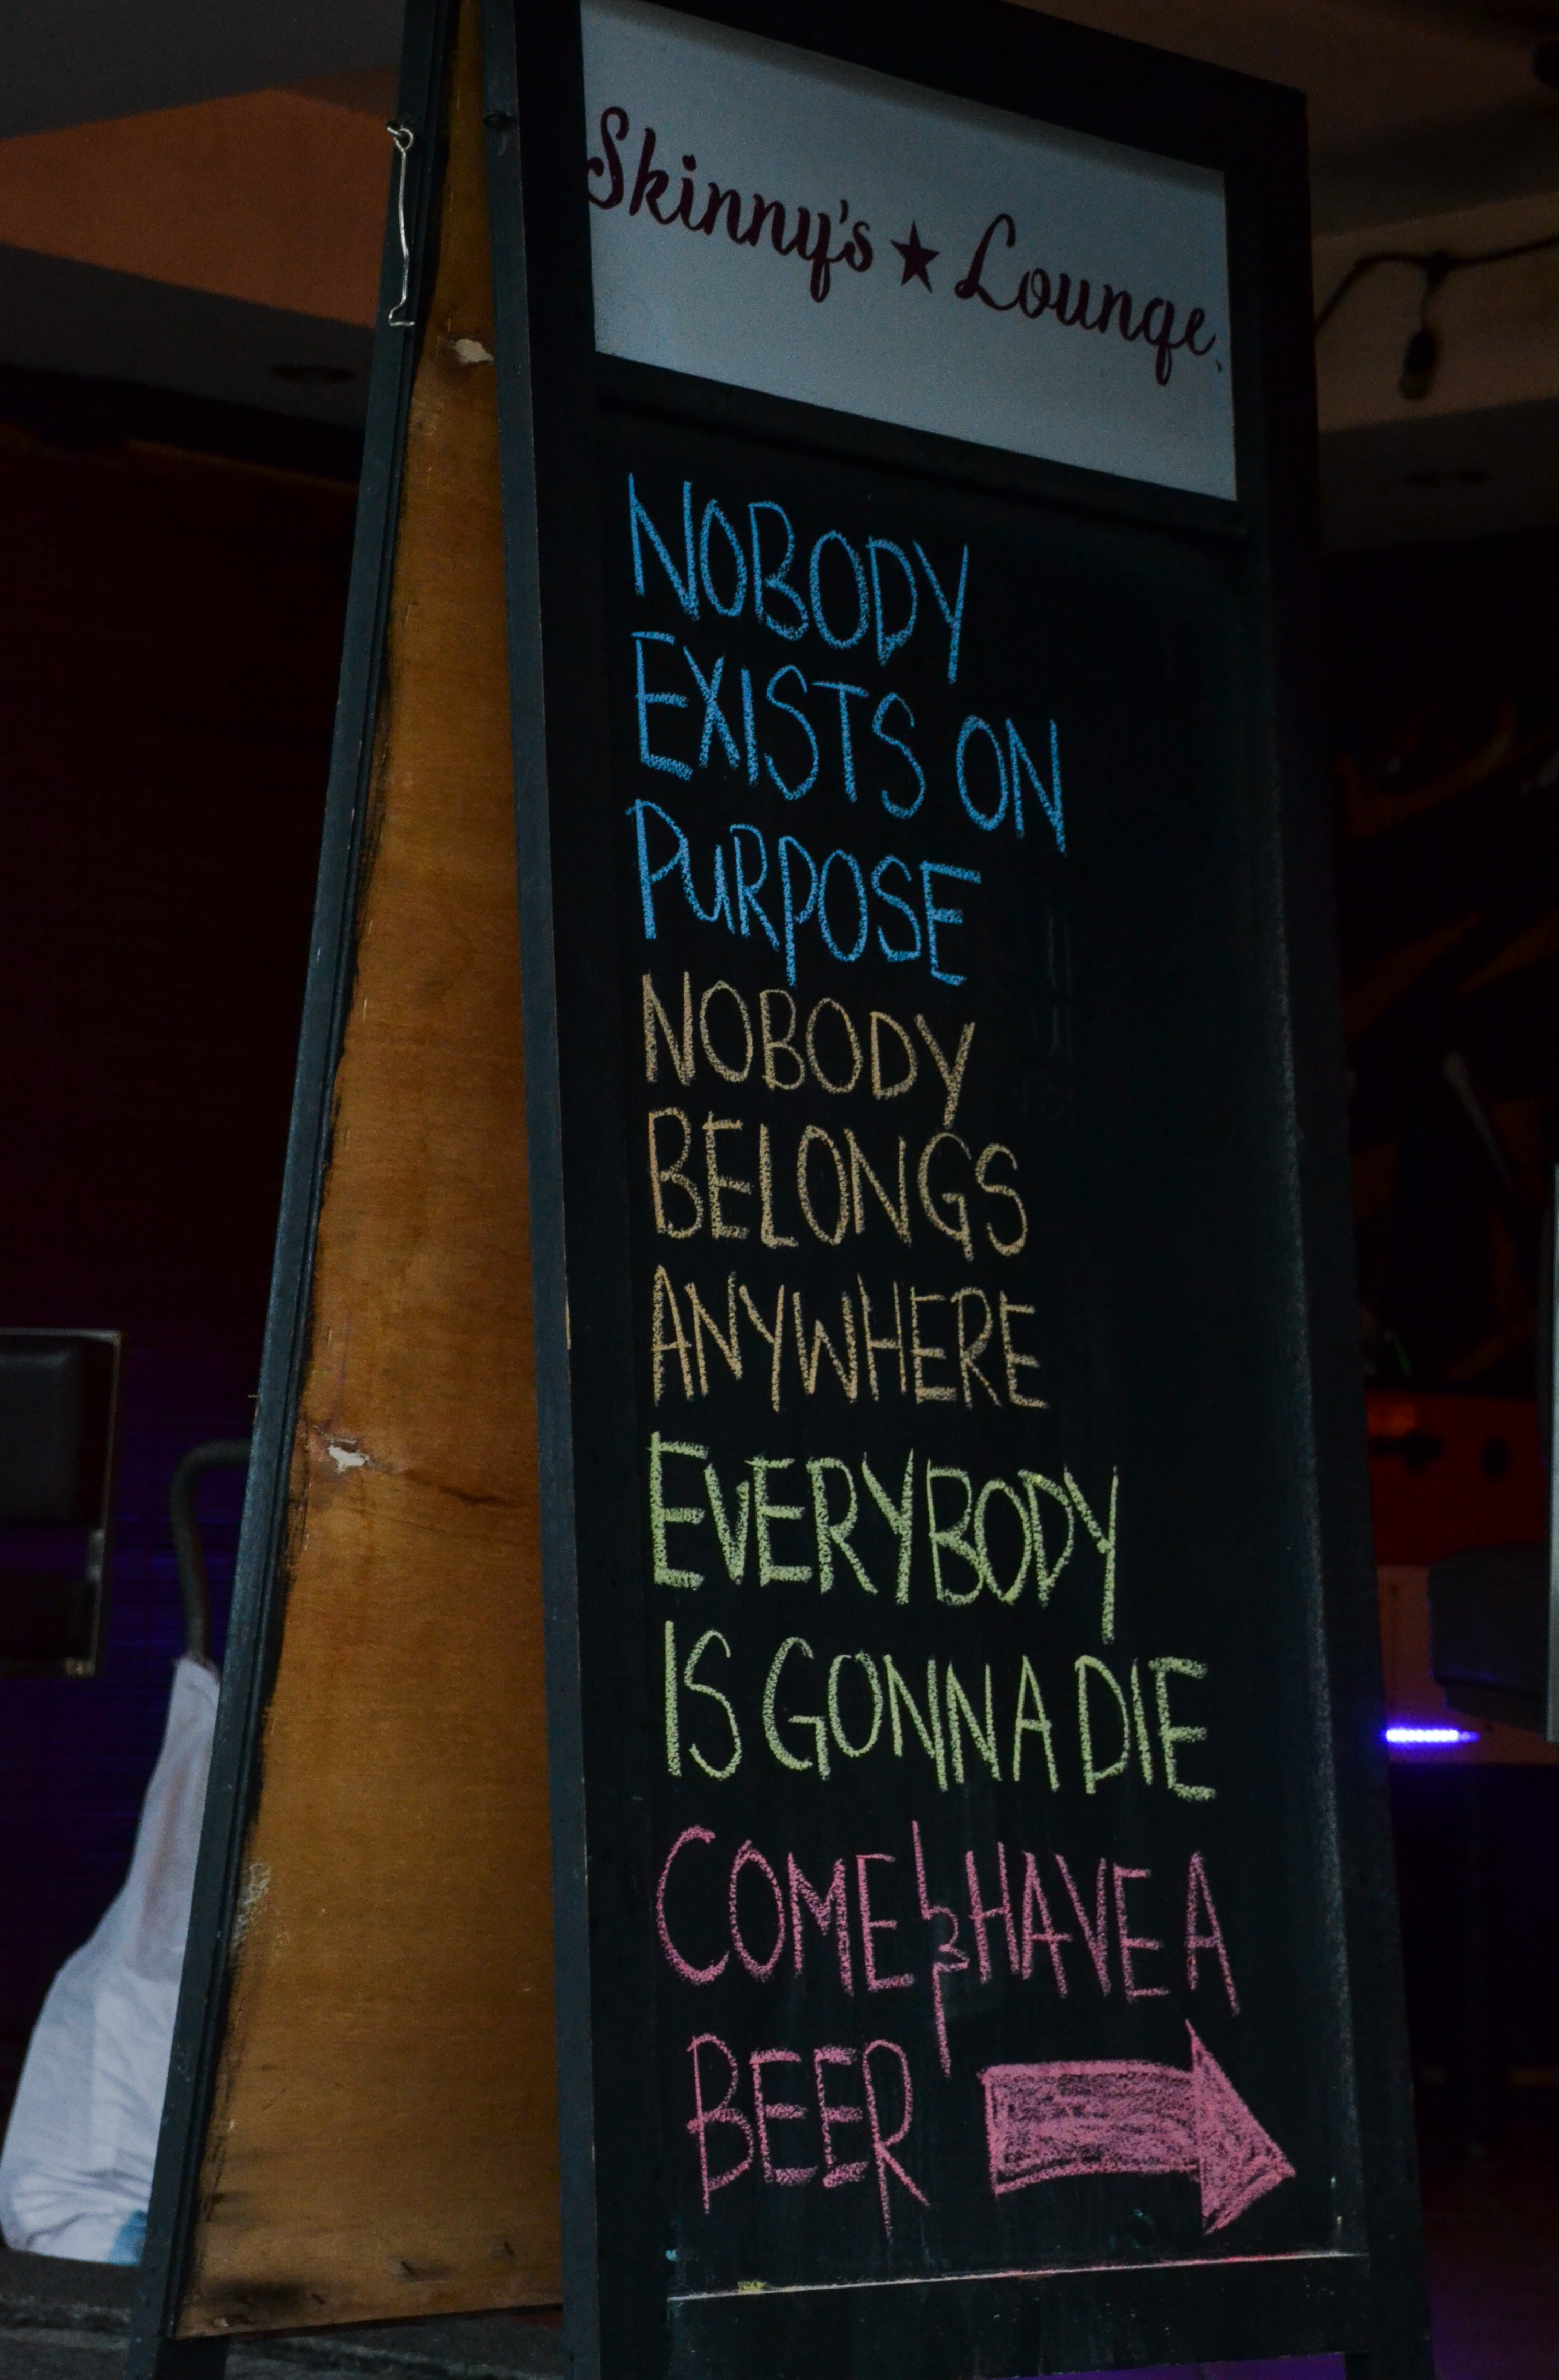 Skinny's ★ Lounge
NOBODY
EXISTS ON
PURPOSE
NOBODY
BELONGS
ANYWHERE
EVERYBODY
IS GONNA DIE
COME & HAVE A
BEER